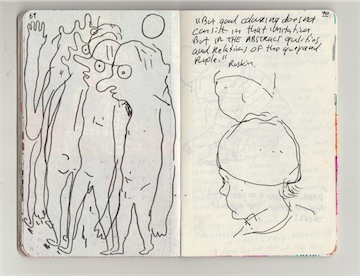 69
70
"But good colouring does not
consist in that imitation,
But in THE ABSTRACT qualities
and Relations of the grey and
Purple."
Ruskin.